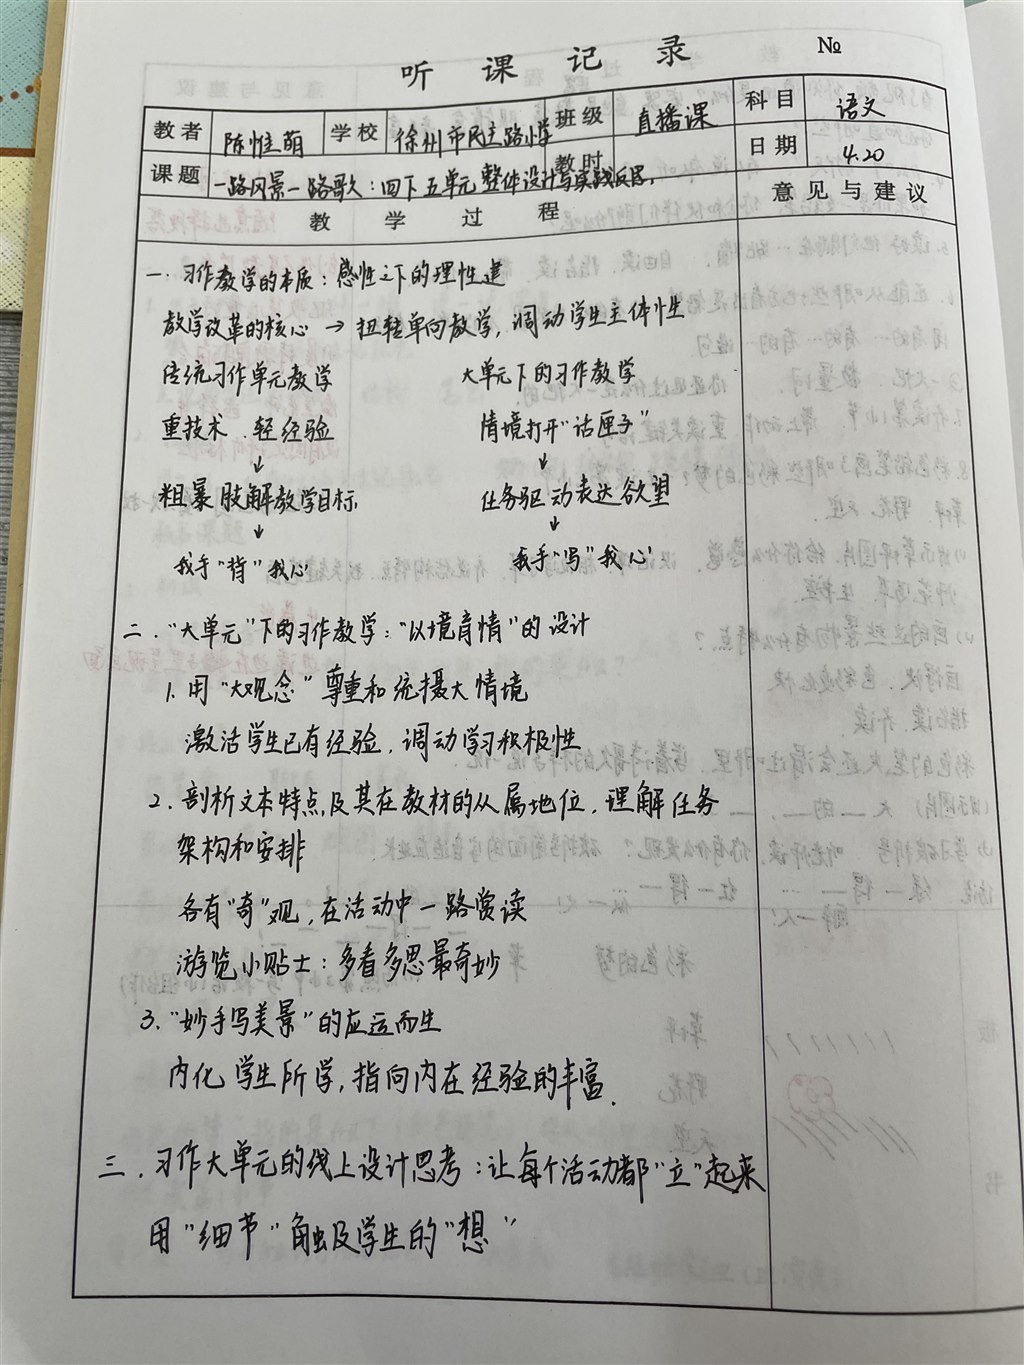 听课记录 №
教者 陈惟萌 学校 徐州市民主路小学 班级 直播课 科目 语文
课题 一路风景一路歌：四下五单元整体设计与实践反思. 教时 日期 4.20
教学过程 意见与建议
一.习作教学的本质：感性之下的理性建
教学改革的核心→扭转单向教学，调动学生主体性
传统习作单元教学 大单元下的习作教学
重技术、轻经验 情境打开“话匣子”
↓ ↓
粗暴肢解教学目标 任务驱动表达欲望
↓ ↓
我手“背”我心 我手“写”我心
二.“大单元”下的习作教学：“以境育情”的设计
1.用“大观念”尊重和统摄大情境
激活学生已有经验，调动学习积极性
2.剖析文本特点及其在教材的从属地位，理解任务
架构和安排
各有“奇”观，在活动中一路赏读
游览小贴士：多看多思最奇妙
3.“妙手写美景”的应运而生
内化学生所学，指向内在经验的丰富.
三.习作大单元的线上设计思考：让每个活动都“立”起来
用“细节”触及学生的“想”